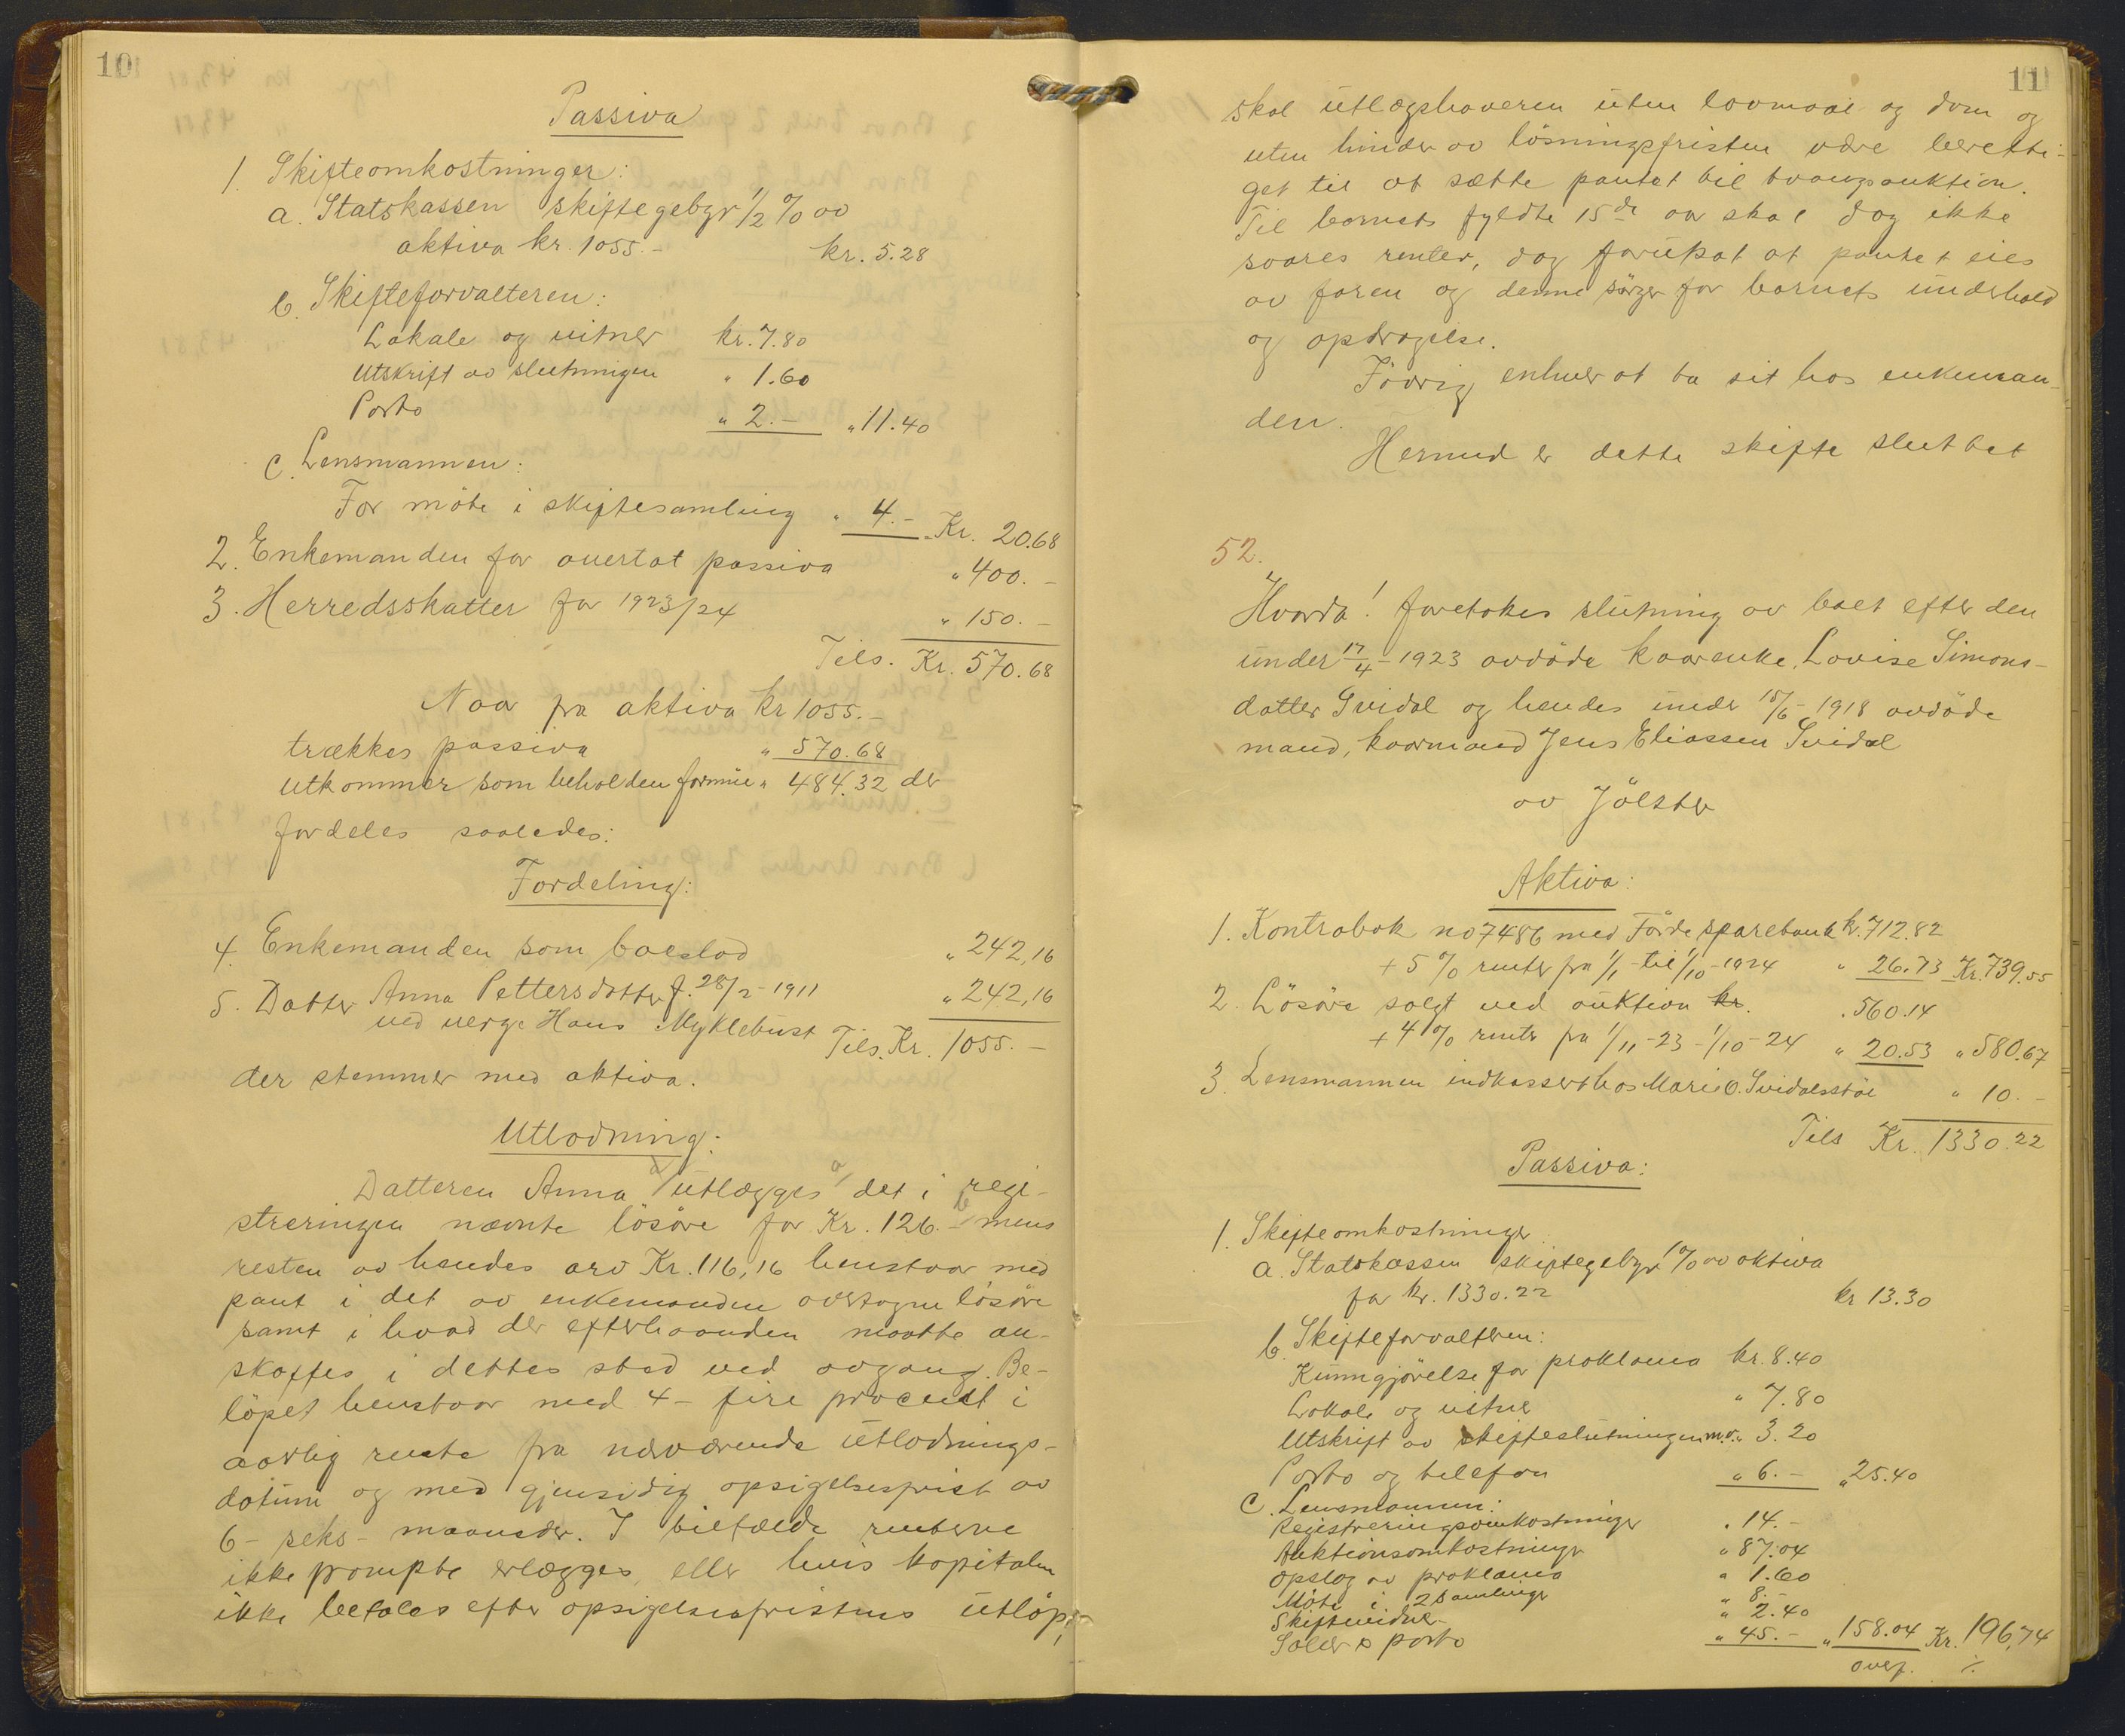 10
Passiva
1. Skifteomkostninger:
a. Statskassen skiftegebyr 1/2 % av
aktiva kr. 1055.- kr. 5.28
b. Skifteforvalteren:
Lokale og vitner kr. 7.80
Utskrift av slutningen " 1.60
Porto " 2.- " 11.40
c. Lensmannen:
For möte i skiftesamling " 4.- Kr. 20.68
2. Enkemanden for overtat passiva " 400.-
3. Herredsskatter for 1923/24 " 150.-
Tils. Kr. 570.68
Naar fra aktiva kr 1055.-
trækkes passiva " 570.68
utkommer som beholden formue " 484.32 der
fordeles saaledes:
Fordeling:
4. Enkemanden som boeslod " 242,16
5. Datter Anna Pettersdatter f. 28/2-1911 " 242,16
ved verge Hans Myklebust Tils. Kr. 1055.-
der stemmer med aktiva.
Utlodning:
Datteren Anna utlægges a/ det i regi-
streringen nævnte lösöre for Kr. 126.- mens
resten av hendes arv Kr. 116,16 henstaar med
pant i det av enkemanden overtagne lösöre
samt i hvad der efterhaanden maatte an-
skaffes i dettes sted ved avgang. Be-
löpet henstaar med 4 - fire procent i
aarlig rente fra nærværende utlodnings-
datum og med gjensidig opsigelsesfrist av
6 - seks - maaneder. I tilfælde renterne
ikke prompte erlægges, eller hvis kapitalen
ikke betales efter opsigelsesfristens utlöp,
11
skal utlægshaveren uten lovmaal og dom og
uten hinder av lösningsfristen være beretti-
get til at sætte pantet til tvangsauktion.
Til barnets fyldte 15de aar skal dog ikke
svares renter, dog forutsat at pantet eies
av faren og denne sörger for barnets underhold
og opdragelse.
Iövrig enhver at ta sit hos enkeman-
den.
Hermed er dette skifte sluttet
52.
Hvorda! foretokes slutning av boet efter den
under 17/4-1923 avdöde kaarenke, Lovise Simons-
datter Svidal og hendes under 15/6-1918 avdöde
mand, kaarmand Jens Eliassen Svidal
av Jölster
Aktiva:
1. Kontrabok no 7486 med Förde sparebank kr. 712.82
+ 5 % renter fra 1/1-til 1/10-1924 " 26.73 Kr. 739.55
2. Lösöre solgt ved auktion kr. " 560.14
+ 4 % renter fra 1/11-23-1/10-24 " 20.53 " 580.67
3. Lensmannen indkassert hos Marie O. Svidalsstöl " 10.-
Tils Kr. 1330.22
Passiva:
1. Skifteomkostninger
a. Statskassen skiftegebyr 1 % av aktiva
for kr. 1330.22 kr 13.30
b. Skifteforvalteren:
Kunngjörelse for proklama kr. 8.40
Lokale og vitner " 7.80
Utskrift av skifteslutningen m.v. " 3.20
Porto og telefon " 6.- " 25.40
c. Lensmannen:
Registreringsomkostninger " 14.-
Auktionsomkostninger " 87.04
Opslag av proklama " 1.60
Möte i 2 samlinger " 8.-
Skiftevidner " 2.40
Salær & porto " 45.- " 158.04 Kr. 196,74
overf. ./.